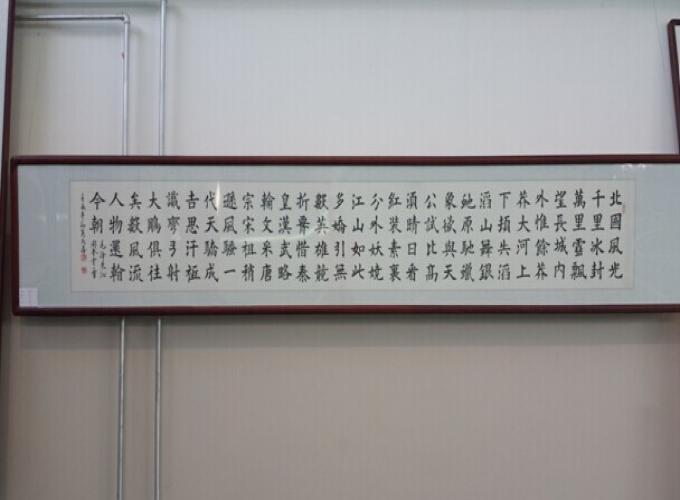 北國風光
千里冰封
萬里雪飄
望長城內
外惟餘莽
莽大河上
下頓失滔
滔山舞銀
蛇原馳蠟
象欲與天
公試比高
須晴日看
紅裝素裹
分外妖嬈
江山如此
多嬌引無
數英雄競
折腰惜秦
皇漢武略
輸文采唐
宗宋祖稍
遜風騷一
代天驕成
吉思汗祗
識彎弓射
大鵰俱往
矣數風流
人物還看
今朝
毛澤東沁
園春雪